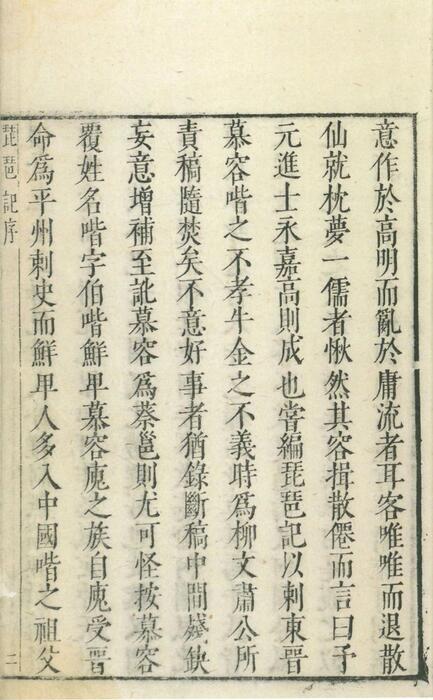 意作於高明而亂於庸流者耳客唯唯而退散
仙就枕夢一儒者愀然其容揖散僊而言曰予
元進士永嘉高則成也嘗編琵琶記以刺東晉
慕容喈之不孝牛金之不義時為柳文肅公所
責稿隨焚矣不意好事者猶錄斷稿中間殘缺
妄意增補至訛慕容為蔡邕則尤可怪按慕容
覆姓名喈字伯喈鮮卑慕容廆之族自廆受晉
命為平州刺史而鮮卑人多入中國喈之祖父
琵琶記序
二